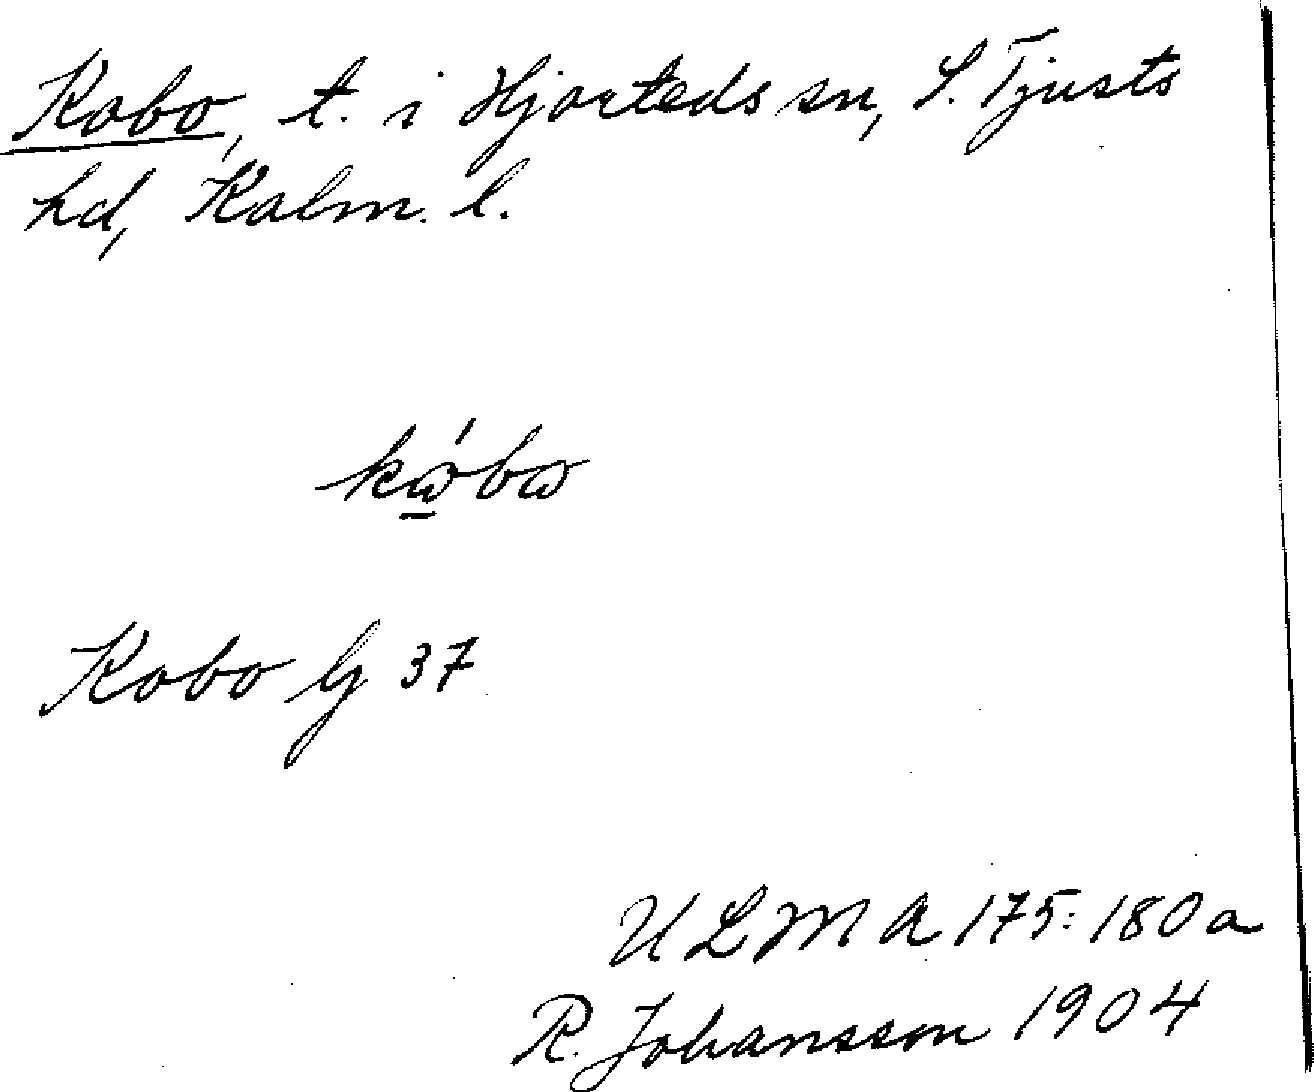 Kobo, t. i Hjorteds sn, S. Tjusts
hd, Kalm. l.
kώ̱bω
Kobo G 37
ULMA 175:180a
R. Johansson 1904